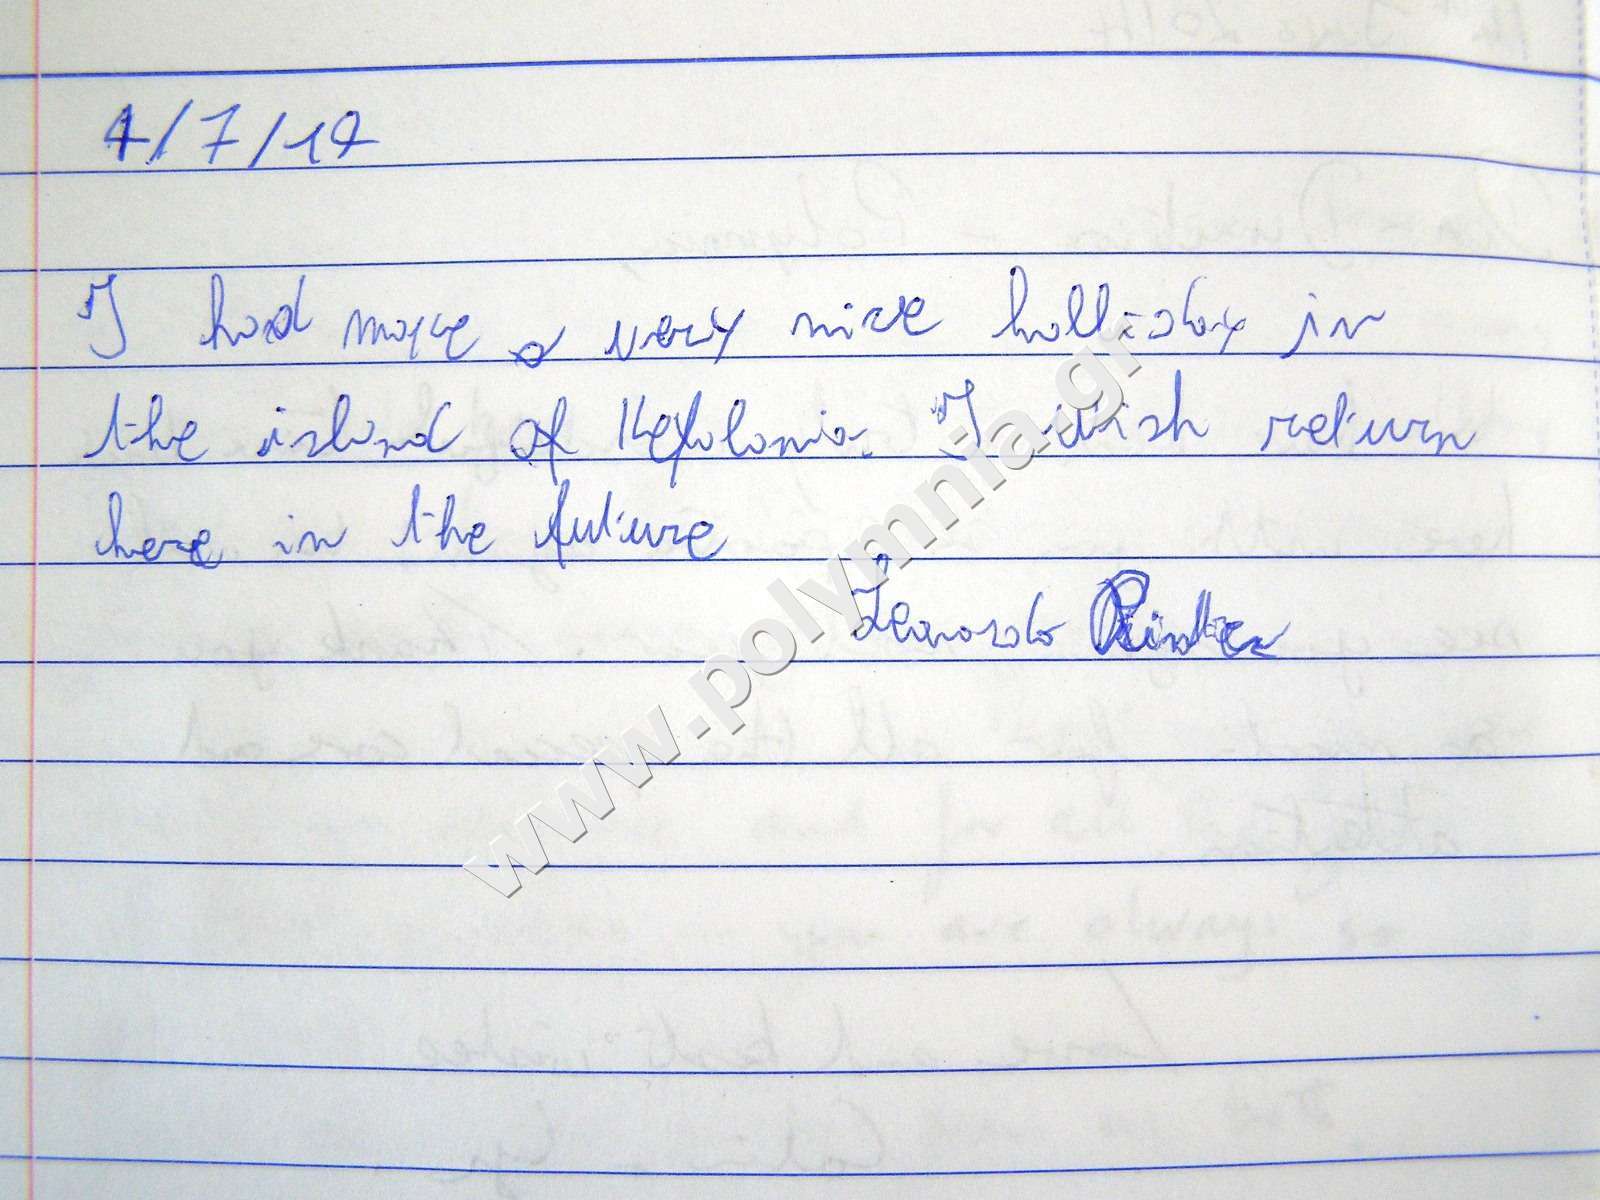 4/7/14
I had make a very nice holliday in
the island of Kefalonia. I wish return
here in the future
Leonardo
www.polymnia.gr